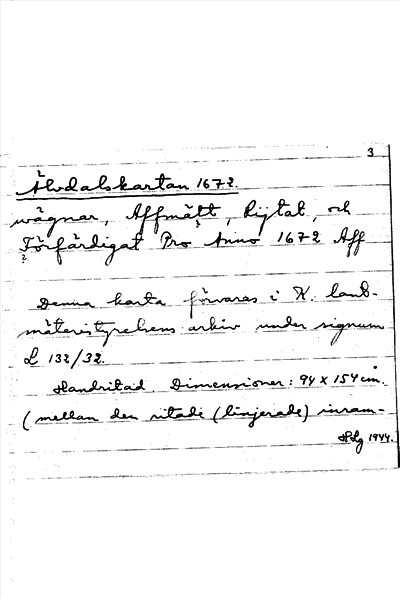 3
Älvdalskartan 1672.
wägnar, Affmätt, Rijtat, och
Förfärdigat Pro Anno 1672 Aff
Denna karta förvaras i K. lant-
mäteristyrelsens arkiv under signum
L 132/32.
Handritad. Dimensioner: 94 x 154 cm.
(mellan den ritade (linjerade) inram-
HLg 1944.